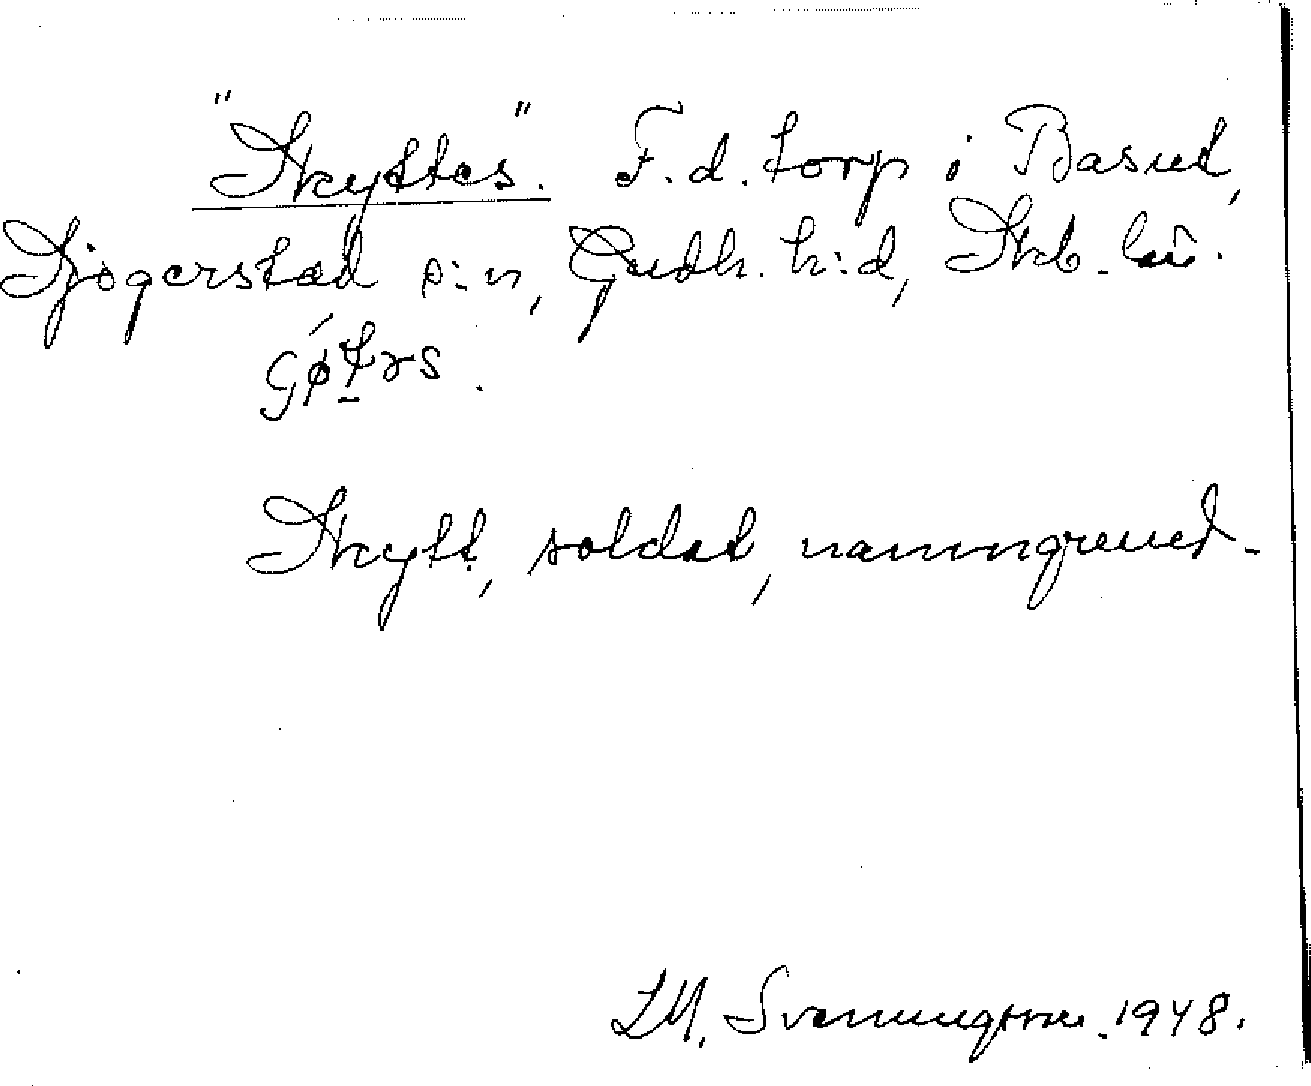 "Skyttes". F.d. torp i Basud,
Sjogerstad s:n, Gudh. h:d, Skb. län.
Skytt, soldat, namngivet.
LM. Svenungsson. 1948.